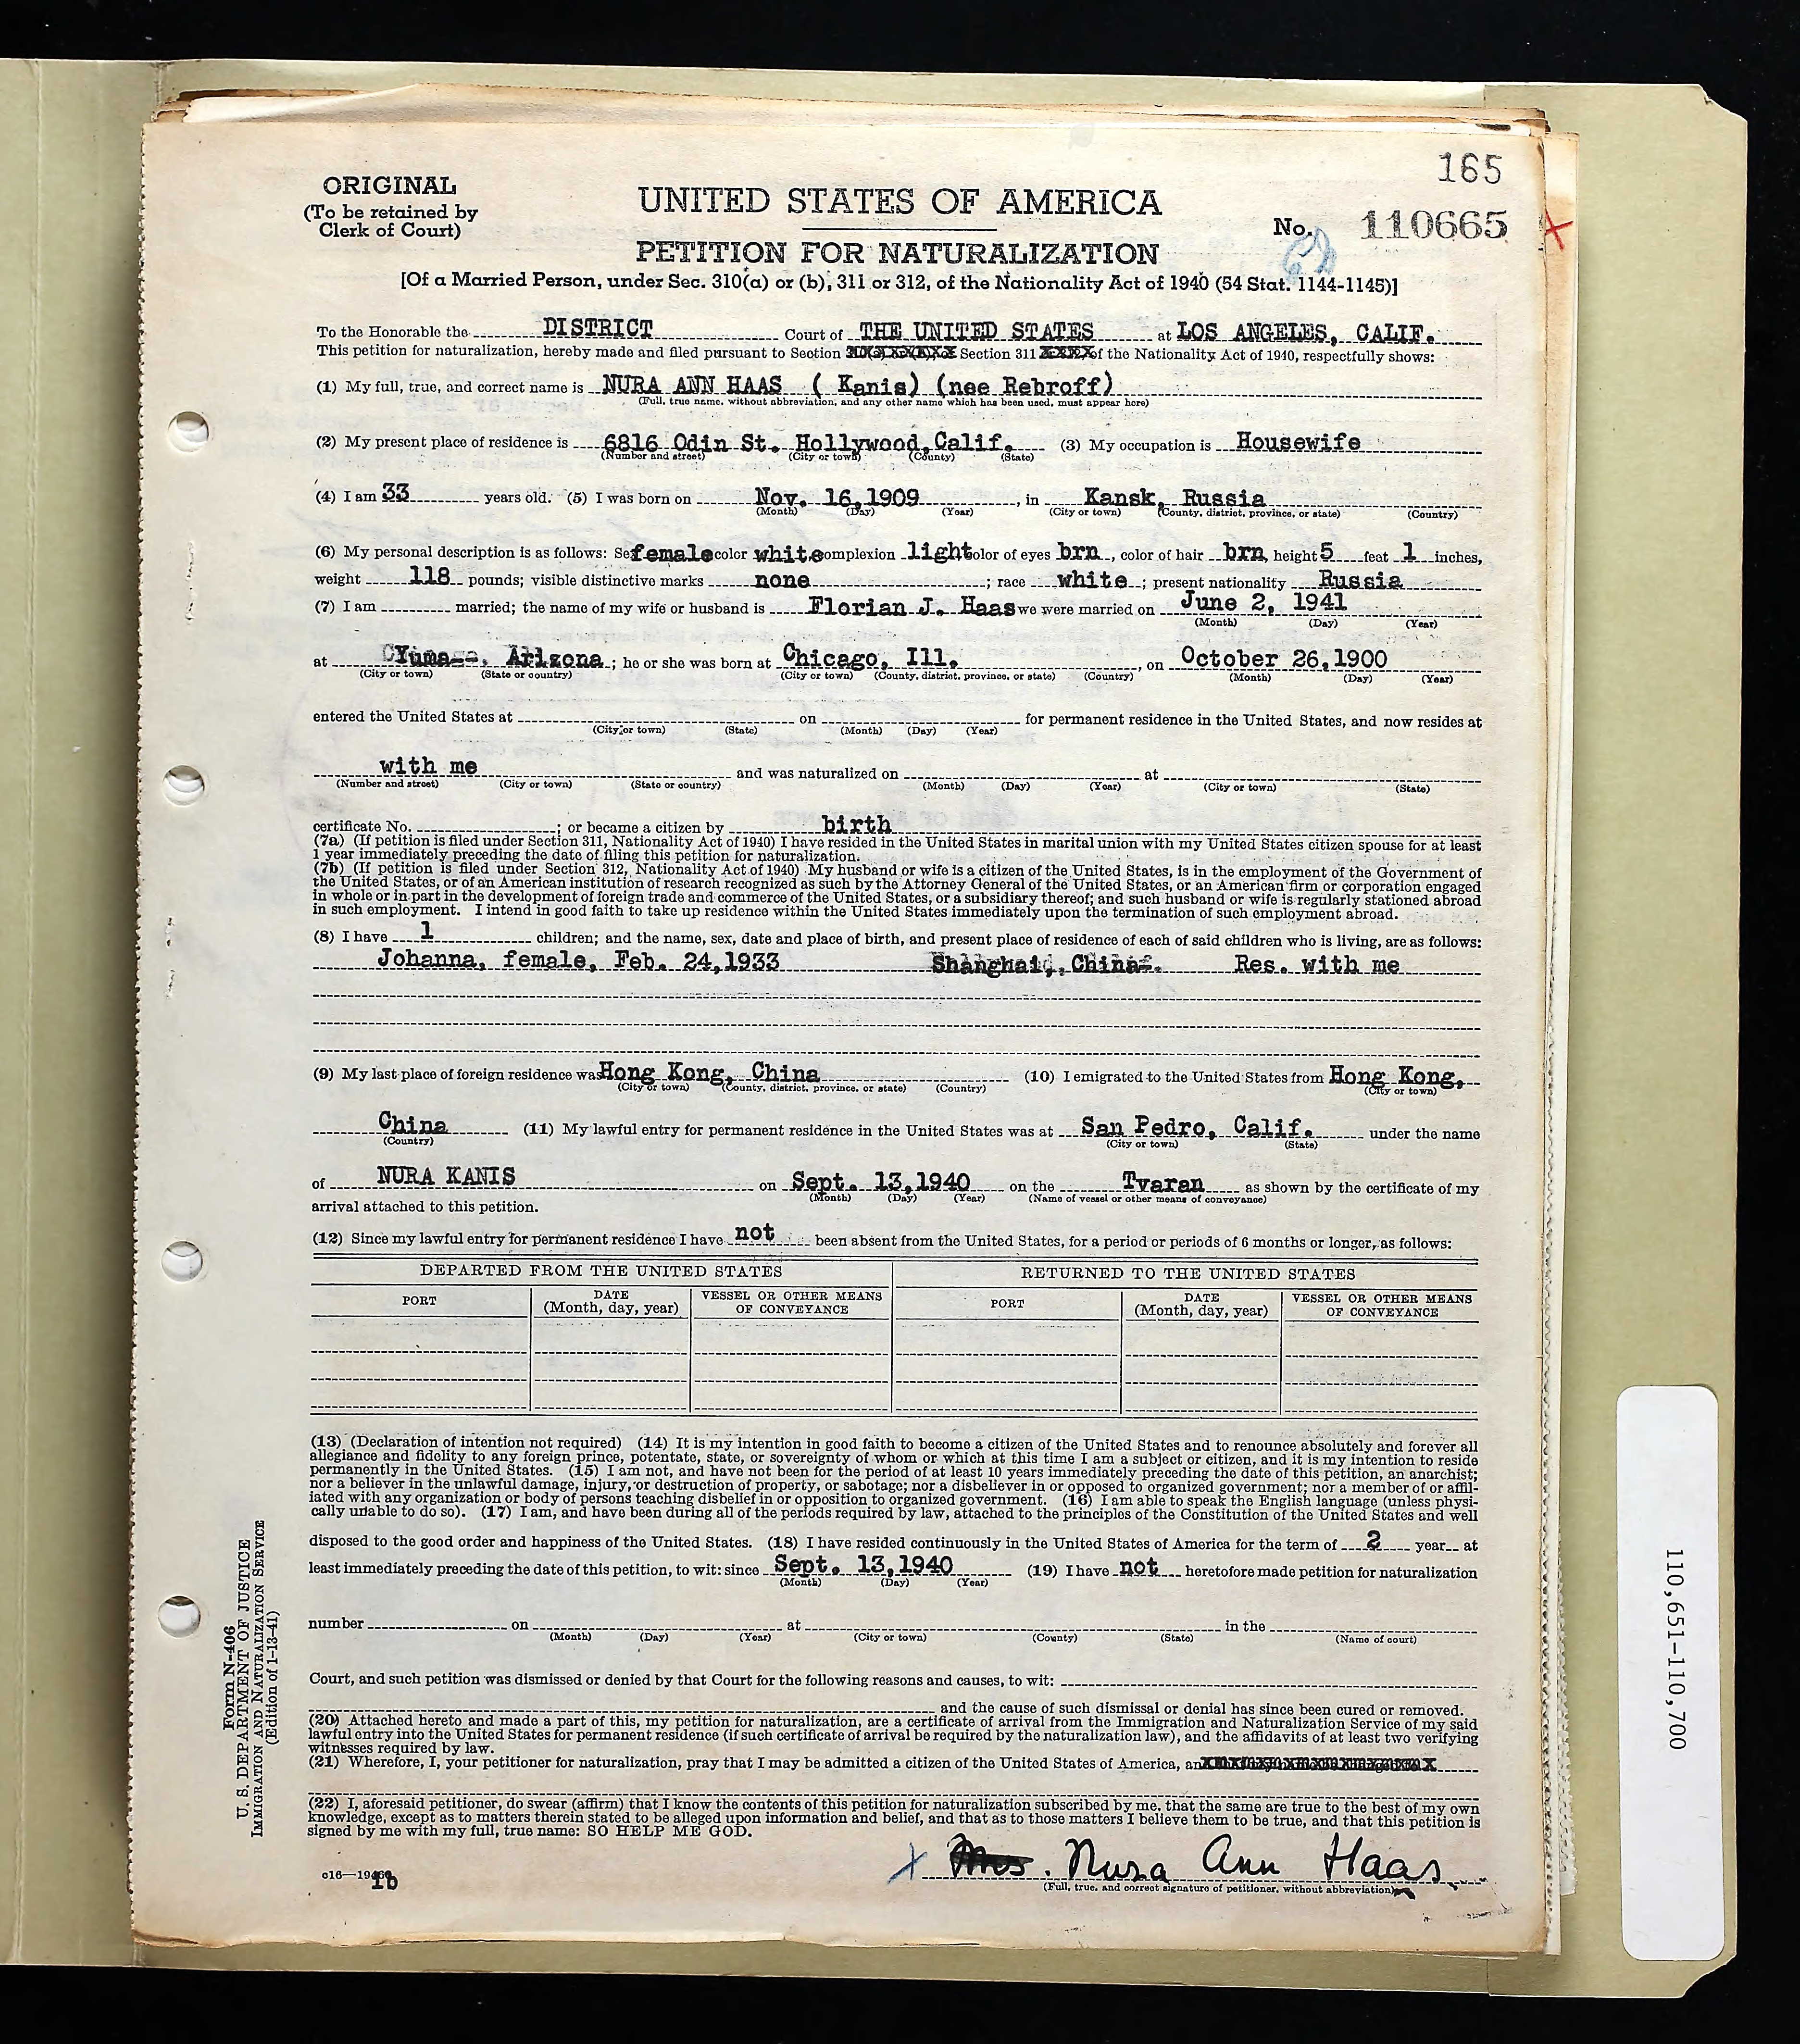 165
ORIGINAL
(To be retained by
Clerk of Court)
UNITED STATES OF AMERICA
No. 110665
PETITION FOR NATURALIZATION
[Of a Married Person, under Sec. 310(a) or (b), 311 or 312, of the Nationality Act of 1940 (54 Stat. 1144-1145)]
To the Honorable the DISTRICT Court of THE UNITED STATES at LOS ANGELES, CALIF.
This petition for naturalization, hereby made and filed pursuant to Section Section 311 of the Nationality Act of 1940, respectfully shows:
(1) My full, true, and correct name is NURA ANN HAAS ( Kanis) (nee Rebroff)
(Full, true name, without abbreviation, and any other name which has been used, must appear here)
(2) My present place of residence is 6816 Odin St. Hollywood, Calif. (3) My occupation is Housewife
(Number and street) (City or town) (County) (State)
(4) I am 33 years old. (5) I was born on Nov. 16,1909, in Kansk, Russia
(Month) (Day) (Year) (City or town) (County, district, province, or state) (Country)
(6) My personal description is as follows: Sex female color white complexion light color of eyes brn, color of hair brn, height 5 feet 1 inches,
weight 118 pounds; visible distinctive marks none; race white; present nationality Russia
(7) I am married; the name of my wife or husband is Florian J. Haas we were married on June 2, 1941
(Month) (Day) (Year)
at Yuma, Arizona; he or she was born at Chicago, Ill., on October 26,1900
(City or town) (State or country) (City or town) (County, district, province, or state) (Country) (Month) (Day) (Year)
entered the United States at on for permanent residence in the United States, and now resides at
(City or town) (State) (Month) (Day) (Year)
with me and was naturalized on at
(Number and street) (City or town) (State or country) (Month) (Day) (Year) (City or town) (State)
certificate No. ; or became a citizen by birth
(7a) (If petition is filed under Section 311, Nationality Act of 1940) I have resided in the United States in marital union with my United States citizen spouse for at least
1 year immediately preceding the date of filing this petition for naturalization.
(7b) (If petition is filed under Section 312, Nationality Act of 1940) My husband or wife is a citizen of the United States, is in the employment of the Government of
the United States, or of an American institution of research recognized as such by the Attorney General of the United States, or an American firm or corporation engaged
in whole or in part in the development of foreign trade and commerce of the United States, or a subsidiary thereof; and such husband or wife is regularly stationed abroad
in such employment. I intend in good faith to take up residence within the United States immediately upon the termination of such employment abroad.
(8) I have 1 children; and the name, sex, date and place of birth, and present place of residence of each of said children who is living, are as follows:
Johanna, female, Feb. 24,1933 Shanghai, China. Res. with me
(9) My last place of foreign residence was Hong Kong, China (10) I emigrated to the United States from Hong Kong,
(City or town) (County, district, province, or state) (Country) (City or town)
China (11) My lawful entry for permanent residence in the United States was at San Pedro, Calif. under the name
(Country) (City or town) (State)
of NURA KANIS on Sept. 13,1940 on the Tvaran as shown by the certificate of my
(Month) (Day) (Year) (Name of vessel or other means of conveyance)
arrival attached to this petition.
(12) Since my lawful entry for permanent residence I have not been absent from the United States, for a period or periods of 6 months or longer, as follows:
DEPARTED FROM THE UNITED STATES RETURNED TO THE UNITED STATES
PORT DATE (Month, day, year) VESSEL OR OTHER MEANS OF CONVEYANCE PORT DATE (Month, day, year) VESSEL OR OTHER MEANS OF CONVEYANCE
(13) (Declaration of intention not required) (14) It is my intention in good faith to become a citizen of the United States and to renounce absolutely and forever all
allegiance and fidelity to any foreign prince, potentate, state, or sovereignty of whom or which at this time I am a subject or citizen, and it is my intention to reside
permanently in the United States. (15) I am not, and have not been for the period of at least 10 years immediately preceding the date of this petition, an anarchist;
nor a believer in the unlawful damage, injury, or destruction of property, or sabotage; nor a disbeliever in or opposed to organized government; nor a member of or affil-
iated with any organization or body of persons teaching disbelief in or opposition to organized government. (16) I am able to speak the English language (unless physi-
cally unable to do so). (17) I am, and have been during all of the periods required by law, attached to the principles of the Constitution of the United States and well
disposed to the good order and happiness of the United States. (18) I have resided continuously in the United States of America for the term of 2 year at
least immediately preceding the date of this petition, to wit: since Sept. 13,1940 (19) I have not heretofore made petition for naturalization
(Month) (Day) (Year)
number on at in the
(Month) (Day) (Year) (City or town) (County) (State) (Name of court)
Court, and such petition was dismissed or denied by that Court for the following reasons and causes, to wit:
and the cause of such dismissal or denial has since been cured or removed.
(20) Attached hereto and made a part of this, my petition for naturalization, are a certificate of arrival from the Immigration and Naturalization Service of my said
lawful entry into the United States for permanent residence (if such certificate of arrival be required by the naturalization law), and the affidavits of at least two verifying
witnesses required by law.
(21) Wherefore, I, your petitioner for naturalization, pray that I may be admitted a citizen of the United States of America,
(22) I, aforesaid petitioner, do swear (affirm) that I know the contents of this petition for naturalization subscribed by me, that the same are true to the best of my own
knowledge, except as to matters therein stated to be alleged upon information and belief, and that as to those matters I believe them to be true, and that this petition is
signed by me with my full, true name: SO HELP ME GOD.
X Mrs. Nura Ann Haas
(Full, true, and correct signature of petitioner, without abbreviation)
Form N-406
U. S. DEPARTMENT OF JUSTICE
IMMIGRATION AND NATURALIZATION SERVICE
(Edition of 1-13-41)
110,651-110,700